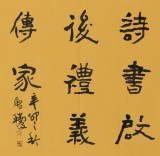 詩書啟
後禮義
傳家
辛卯之秋